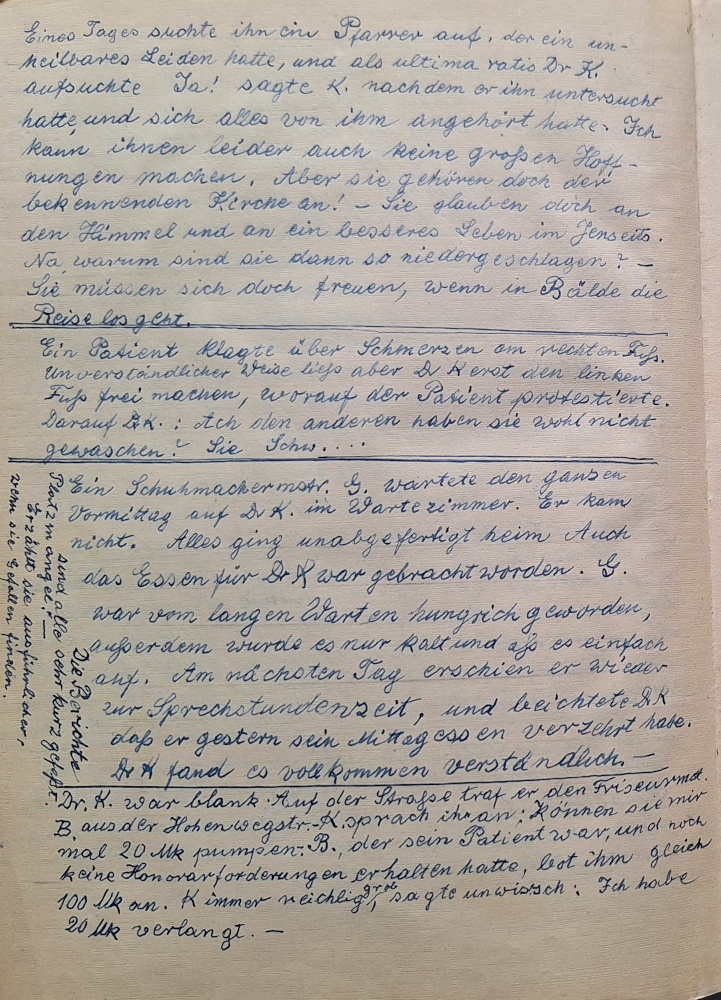 Eines Tages suchte ihn ein Pfarrer auf, der ein un-
heilbares Leiden hatte, und als ultima ratio Dr K.
aufsuchte Ja! sagte K. nachdem er ihn untersucht
hatte und sich alles von ihm angehört hatte. Ich
kann ihnen leider auch keine großen Hoff-
nungen machen. Aber sie gehören doch der
bekennenden Kirche an! – Sie glauben doch an
den Himmel und an ein besseres Leben im Jenseits.
Na, warum sind sie dann so niedergeschlagen? –
Sie müssen sich doch freuen, wenn in Bälde die
Reise los geht.
Ein Patient klagte über Schmerzen am rechten Fuß.
Unverständlicher Weise ließ aber Dr K erst den linken
Fuß frei machen, worauf der Patient protestierte.
Darauf Dr K.: Ach den anderen haben sie wohl nicht
gewaschen? Sie Schw....
Ein Schuhmachermstr. G. wartete den ganzen
Vormittag auf Dr K. im Wartezimmer. Er kam
nicht. Alles ging unabgefertigt heim Auch
das Essen für Dr K war gebracht worden. G.
war vom langen Warten hungrich geworden,
außerdem wurde es nur kalt und aß es einfach
auf. Am nächsten Tag erschien er wieder
zur Sprechstundenzeit, und beichtete Dr K
daß er gestern sein Mittagessen verzehrt habe.
Dr K fand es vollkommen verständlich. –
Die Berichte
sind alle sehr kurz gefaßt
Platzmangel! –
Erzählt sie ausführlicher,
wenn sie Gefallen finden.
Dr. K. war blank. Auf der Straße traf er den Friseurmst.
B. aus der Hohenwegstr. K. sprach ihn an: Können sie mir
mal 20 Mk pumpen. B., der sein Patient war, und noch
keine Honorarforderungen erhalten hatte, bot ihm gleich
100 Mk an. K immer reichlig grob, sagte unwirsch: Ich habe
20 Mk verlangt. –